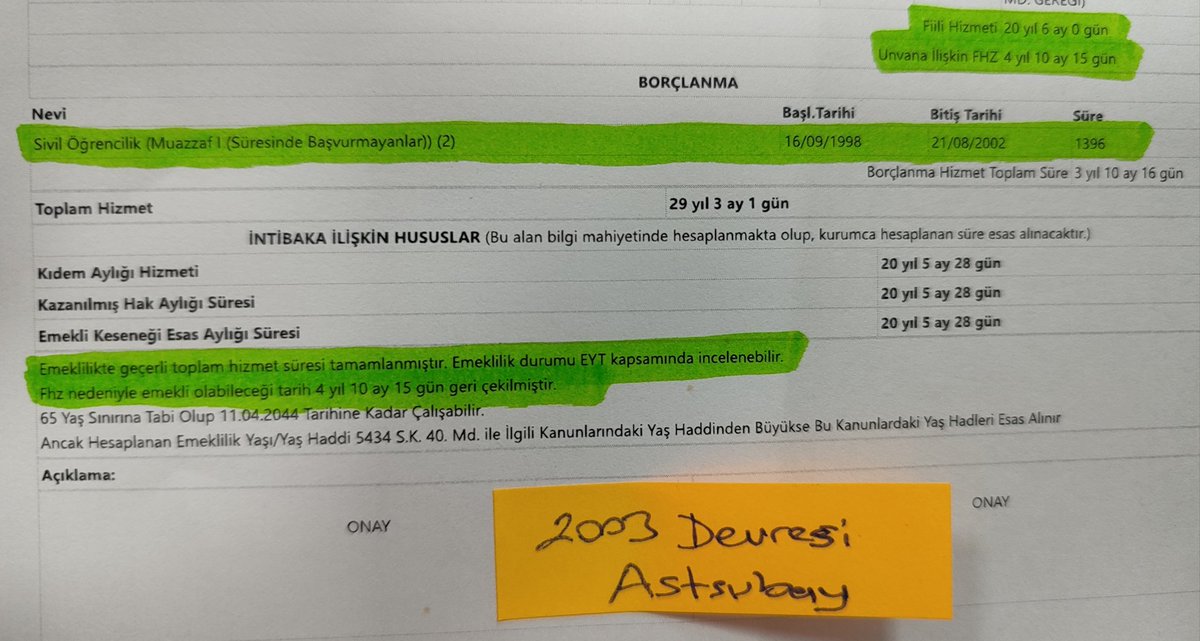 MD. GEREĞİ)
Fiili Hizmeti 20 yıl 6 ay 0 gün
Unvana İlişkin FHZ 4 yıl 10 ay 15 gün
BORÇLANMA
Nevi Başl.Tarihi Bitiş Tarihi Süre
Sivil Öğrencilik (Muazzaf I (Süresinde Başvurmayanlar)) (2) 16/09/1998 21/08/2002 1396
Borçlanma Hizmet Toplam Süre 3 yıl 10 ay 16 gün
Toplam Hizmet 29 yıl 3 ay 1 gün
İNTİBAKA İLİŞKİN HUSUSLAR (Bu alan bilgi mahiyetinde hesaplanmakta olup, kurumca hesaplanan süre esas alınacaktır.)
Kıdem Aylığı Hizmeti 20 yıl 5 ay 28 gün
Kazanılmış Hak Aylığı Süresi 20 yıl 5 ay 28 gün
Emekli Keseneği Esas Aylığı Süresi 20 yıl 5 ay 28 gün
Emeklilikte geçerli toplam hizmet süresi tamamlanmıştır. Emeklilik durumu EYT kapsamında incelenebilir.
Fhz nedeniyle emekli olabileceği tarih 4 yıl 10 ay 15 gün geri çekilmiştir.
65 Yaş Sınırına Tabi Olup 11.04.2044 Tarihine Kadar Çalışabilir.
Ancak Hesaplanan Emeklilik Yaşı/Yaş Haddi 5434 S.K. 40. Md. ile İlgili Kanunlarındaki Yaş Haddinden Büyükse Bu Kanunlardaki Yaş Hadleri Esas Alınır
Açıklama:
ONAY ONAY
2003 Devresi
Astsubay